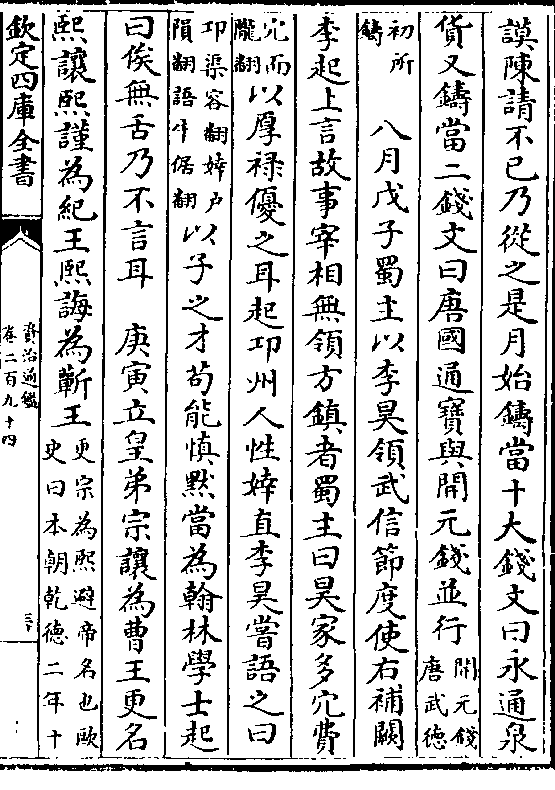 謨陳請不已乃從之是月始鑄當十大錢文曰永通泉
貨又鑄當二錢文曰唐國通寶與開元錢並行開元錢唐武德
初所鑄 八月戊子蜀主以李昊領武信節度使右補闕
李起上言故事宰相無領方鎮者蜀主曰昊家多宂費
宂而隴翻以厚祿優之耳起邛州人性婞直李昊嘗語之曰
邛渠容翻婞戸頂翻語牛倨翻以子之才苟能慎默當為翰林學士起
曰俟無舌乃不言耳 庚寅立皇弟宗讓為曹王更名
熙讓熙謹為紀王熙誨為蘄王更宗為熙避帝名也歐史曰本朝乾德二年十
欽定四庫全書
資治通鑑
卷二百九十四